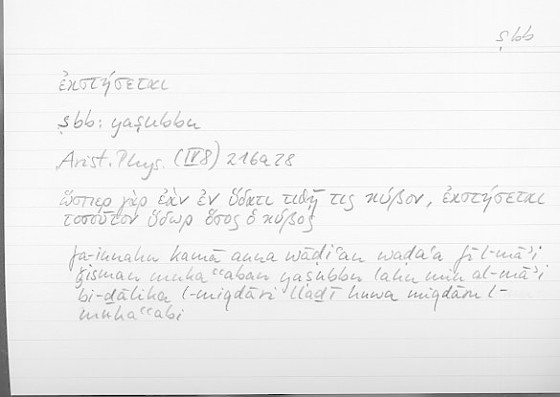 ṣbb
ἐκστήσεται
ṣbb: yaṣubbu
Arist. Phys. (IV 8) 216a28
ὥσπερ γὰρ ἐὰν ἐν ὕδατι τιθῇ τις κύβον, ἐκστήσεται
τοσοῦτον ὕδωρ ὅσος ὁ κύβος
fa-innahu kamā anna wāḍiʿan waḍaʿa fī l-māʾi
ǧisman mukaʿʿaban yaṣubbu lahu min al-māʾi
bi-ḏālika l-miqdāri llaḏī huwa miqdāru l-
mukaʿʿabi